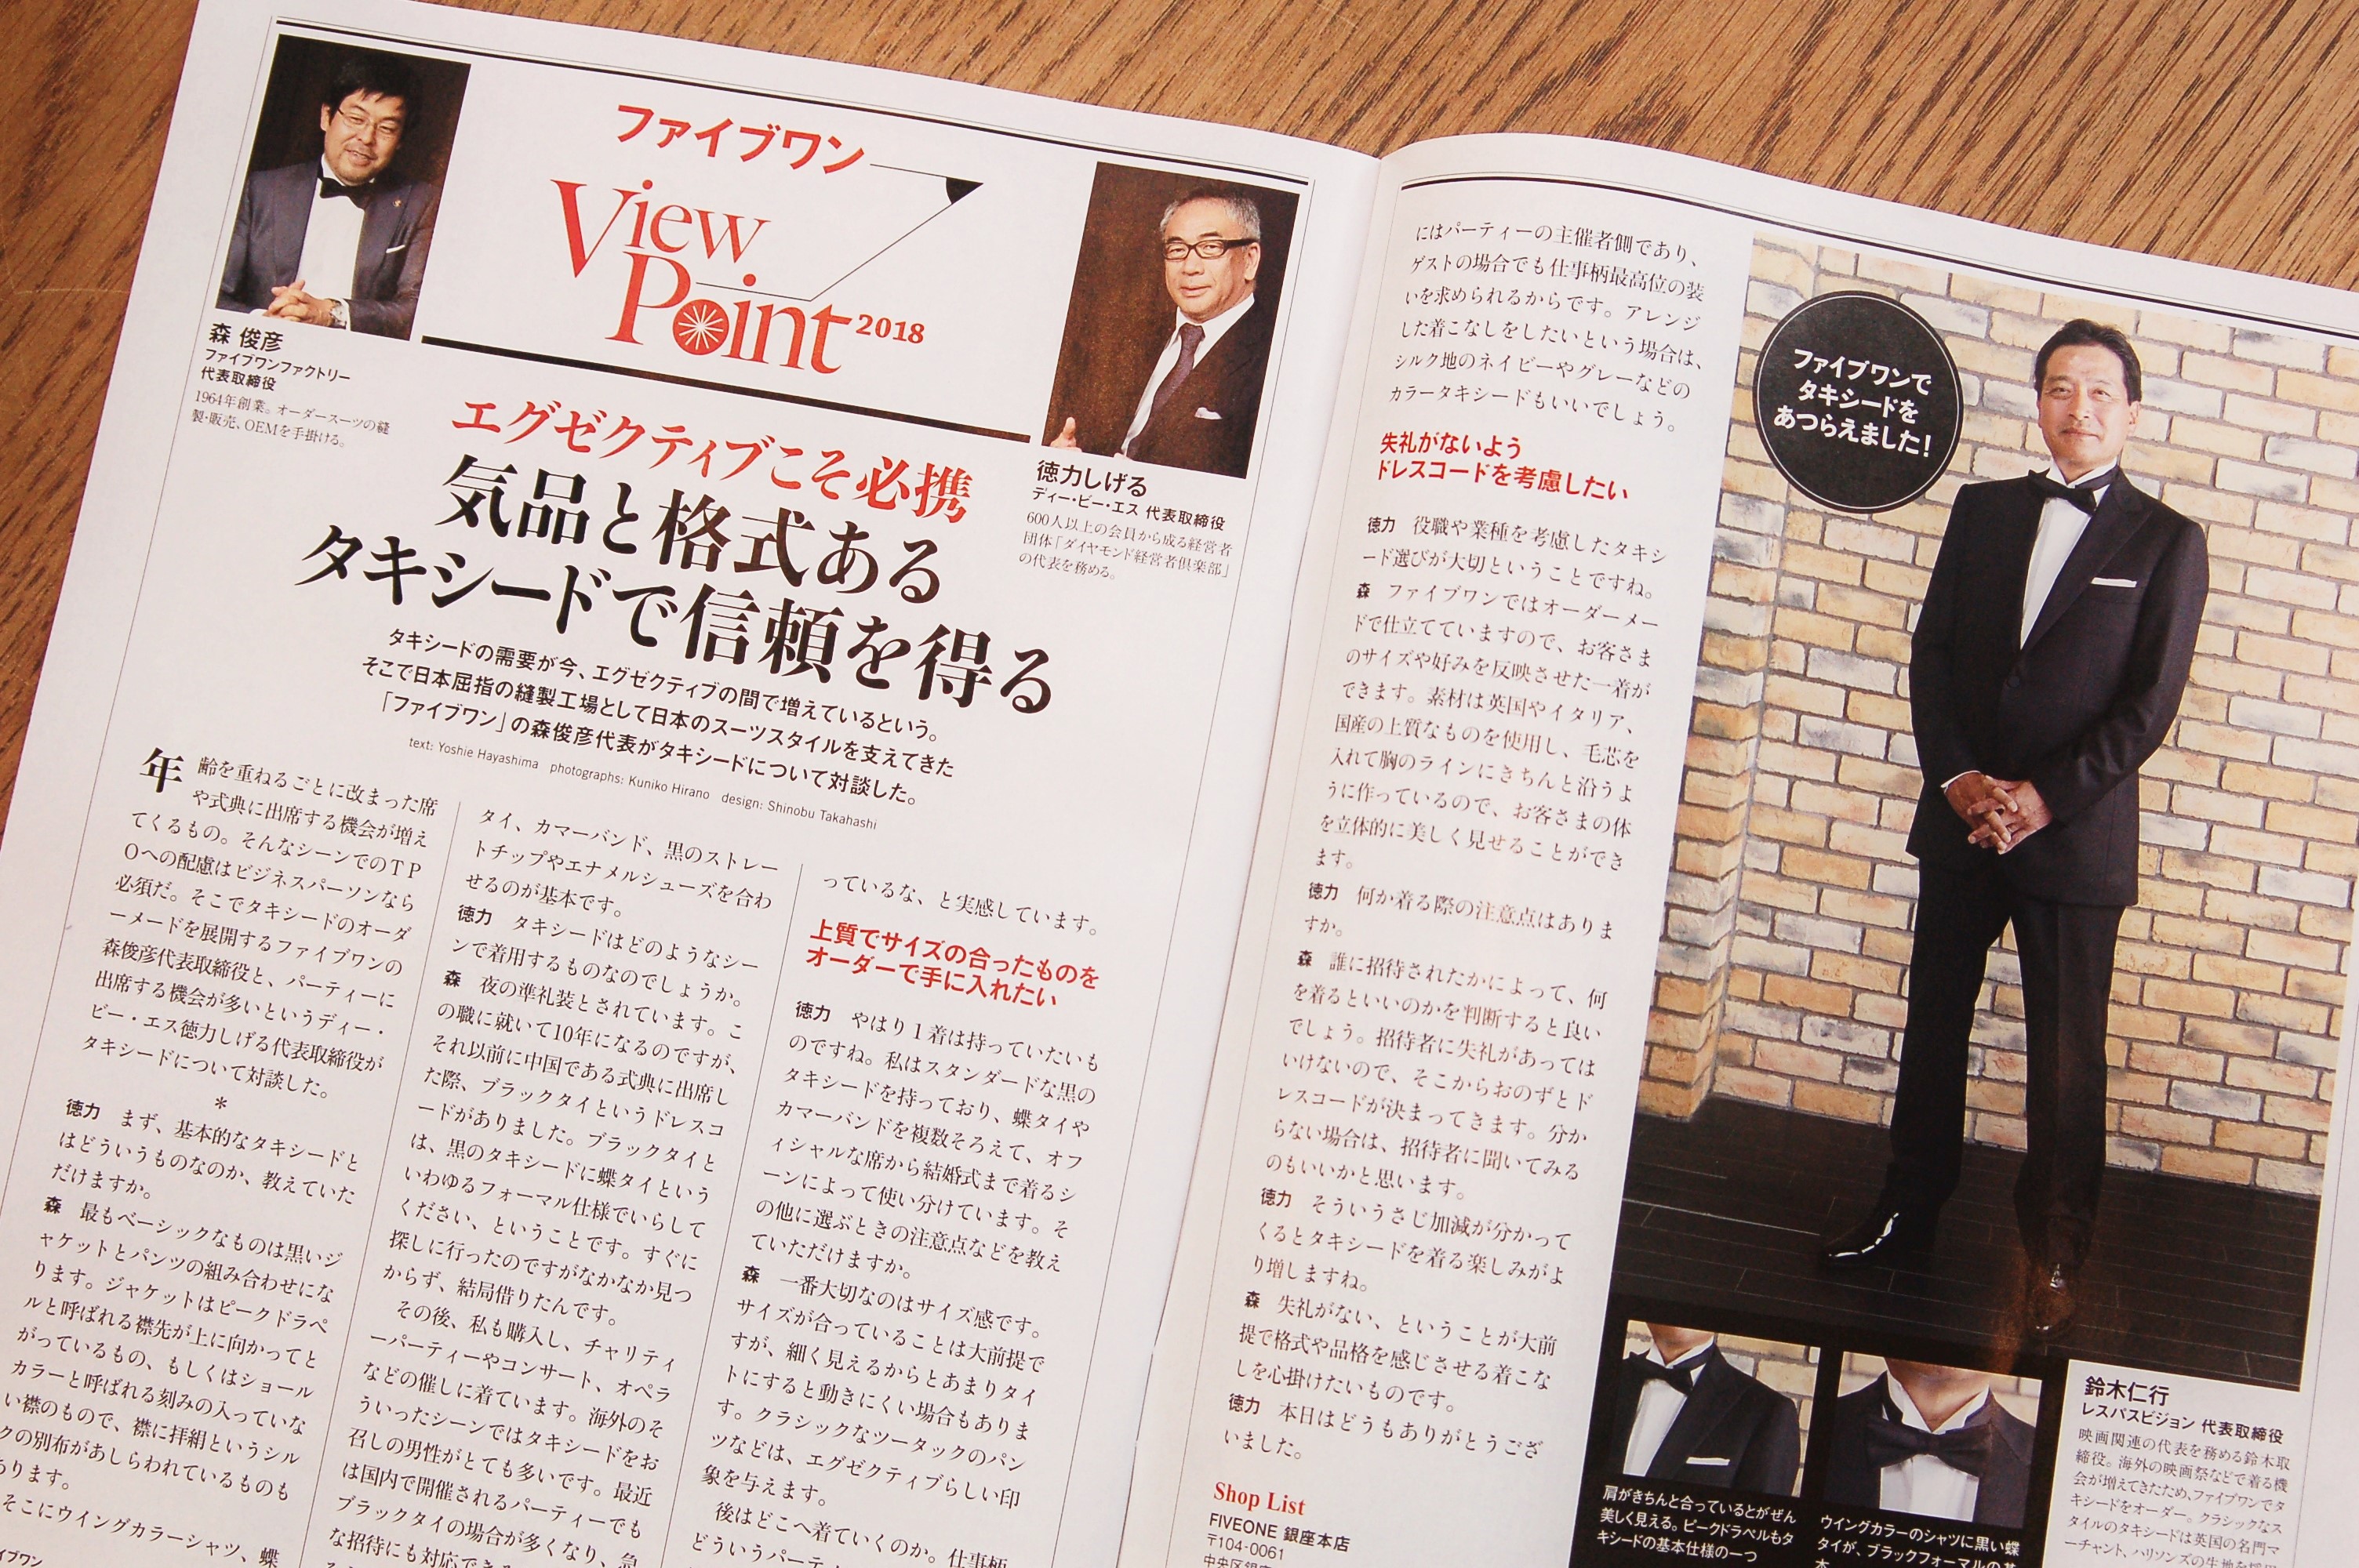 ファイブワン
View
Point 2018
森 俊彦
ファイブワンファクトリー
代表取締役
1964年創業。オーダースーツの縫
製・販売、OEMを手掛ける。
徳力しげる
ディー・ビー・エス 代表取締役
600人以上の会員から成る経営者
団体「ダイヤモンド経営者倶楽部」
の代表を務める。
エグゼクティブこそ必携
気品と格式ある
タキシードで信頼を得る
タキシードの需要が今、エグゼクティブの間で増えているという。
そこで日本屈指の縫製工場として日本のスーツスタイルを支えてきた
「ファイブワン」の森俊彦代表がタキシードについて対談した。
text: Yoshie Hayashima photographs: Kuniko Hirano design: Shinobu Takahashi
年齢を重ねるごとに改まった席
や式典に出席する機会が増え
てくるもの。そんなシーンでのTP
Oへの配慮はビジネスパーソンなら
必須だ。そこでタキシードのオーダ
ーメードを展開するファイブワンの
森俊彦代表取締役と、パーティーに
出席する機会が多いというディー・
ビー・エス徳力しげる代表取締役が
タキシードについて対談した。
*
徳力 まず、基本的なタキシードと
はどういうものなのか、教えていた
だけますか。
森 最もベーシックなものは黒いジ
ャケットとパンツの組み合わせにな
ります。ジャケットはピークドラペ
ルと呼ばれる襟先が上に向かってと
がっているもの、もしくはショール
カラーと呼ばれる刻みの入っていな
い襟のもので、襟に拝絹というシル
クの別布があしらわれているものも
あります。
そこにウイングカラーシャツ、蝶
タイ、カマーバンド、黒のストレー
トチップやエナメルシューズを合わ
せるのが基本です。
徳力 タキシードはどのようなシー
ンで着用するものなのでしょうか。
森 夜の準礼装とされています。こ
の職に就いて10年になるのですが、
それ以前に中国である式典に出席し
た際、ブラックタイというドレスコ
ードがありました。ブラックタイと
は、黒のタキシードに蝶タイという
いわゆるフォーマル仕様でいらして
ください、ということです。すぐに
探しに行ったのですがなかなか見つ
からず、結局借りたんです。
その後、私も購入し、チャリティ
ーパーティーやコンサート、オペラ
などの催しに着ています。海外のそ
ういったシーンではタキシードをお
召しの男性がとても多いです。最近
は国内で開催されるパーティーでも
ブラックタイの場合が多くなり、急
な招待にも対応でき
っているな、と実感しています。
上質でサイズの合ったものを
オーダーで手に入れたい
徳力 やはり1着は持っていたいも
のですね。私はスタンダードな黒の
タキシードを持っており、蝶タイや
カマーバンドを複数そろえて、オフ
ィシャルな席から結婚式まで着るシ
ーンによって使い分けています。そ
の他に選ぶときの注意点などを教え
ていただけますか。
森 一番大切なのはサイズ感です。
サイズが合っていることは大前提で
すが、細く見えるからとあまりタイ
トにすると動きにくい場合もありま
す。クラシックなツータックのパン
ツなどは、エグゼクティブらしい印
象を与えます。
後はどこへ着ていくのか。仕事柄
どういうパーティ
にはパーティーの主催者側であり、
ゲストの場合でも仕事柄最高位の装
いを求められるからです。アレンジ
した着こなしをしたいという場合は、
シルク地のネイビーやグレーなどの
カラータキシードもいいでしょう。
失礼がないよう
ドレスコードを考慮したい
徳力 役職や業種を考慮したタキシ
ード選びが大切ということですね。
森 ファイブワンではオーダーメー
ドで仕立てていますので、お客さま
のサイズや好みを反映させた一着が
できます。素材は英国やイタリア、
国産の上質なものを使用し、毛芯を
入れて胸のラインにきちんと沿うよ
うに作っているので、お客さまの体
を立体的に美しく見せることができ
ます。
徳力 何か着る際の注意点はありま
すか。
森 誰に招待されたかによって、何
を着るといいのかを判断すると良い
でしょう。招待者に失礼があっては
いけないので、そこからおのずとド
レスコードが決まってきます。分か
らない場合は、招待者に聞いてみる
のもいいかと思います。
徳力 そういうさじ加減が分かって
くるとタキシードを着る楽しみがよ
り増しますね。
森 失礼がない、ということが大前
提で格式や品格を感じさせる着こな
しを心掛けたいものです。
徳力 本日はどうもありがとうござ
いました。
Shop List
FIVEONE 銀座本店
〒104-0061
ファイブワンで
タキシードを
あつらえました!
肩がきちんと合っているとがぜん
美しく見える。ピークドラペルもタ
キシードの基本仕様の一つ
ウイングカラーのシャツに黒い蝶
タイが、ブラックフォーマルの基
鈴木仁行
レスパスビジョン 代表取締役
映画関連の代表を務める鈴木取
締役。海外の映画祭などで着る機
会が増えてきたため、ファイブワンでタ
キシードをオーダー。クラシックなス
タイルのタキシードは英国の名門マ
ーチャント、ハリソンズの生地を